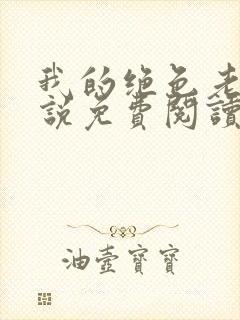 我的绝色老
說免費閱讀
油壺寶寶